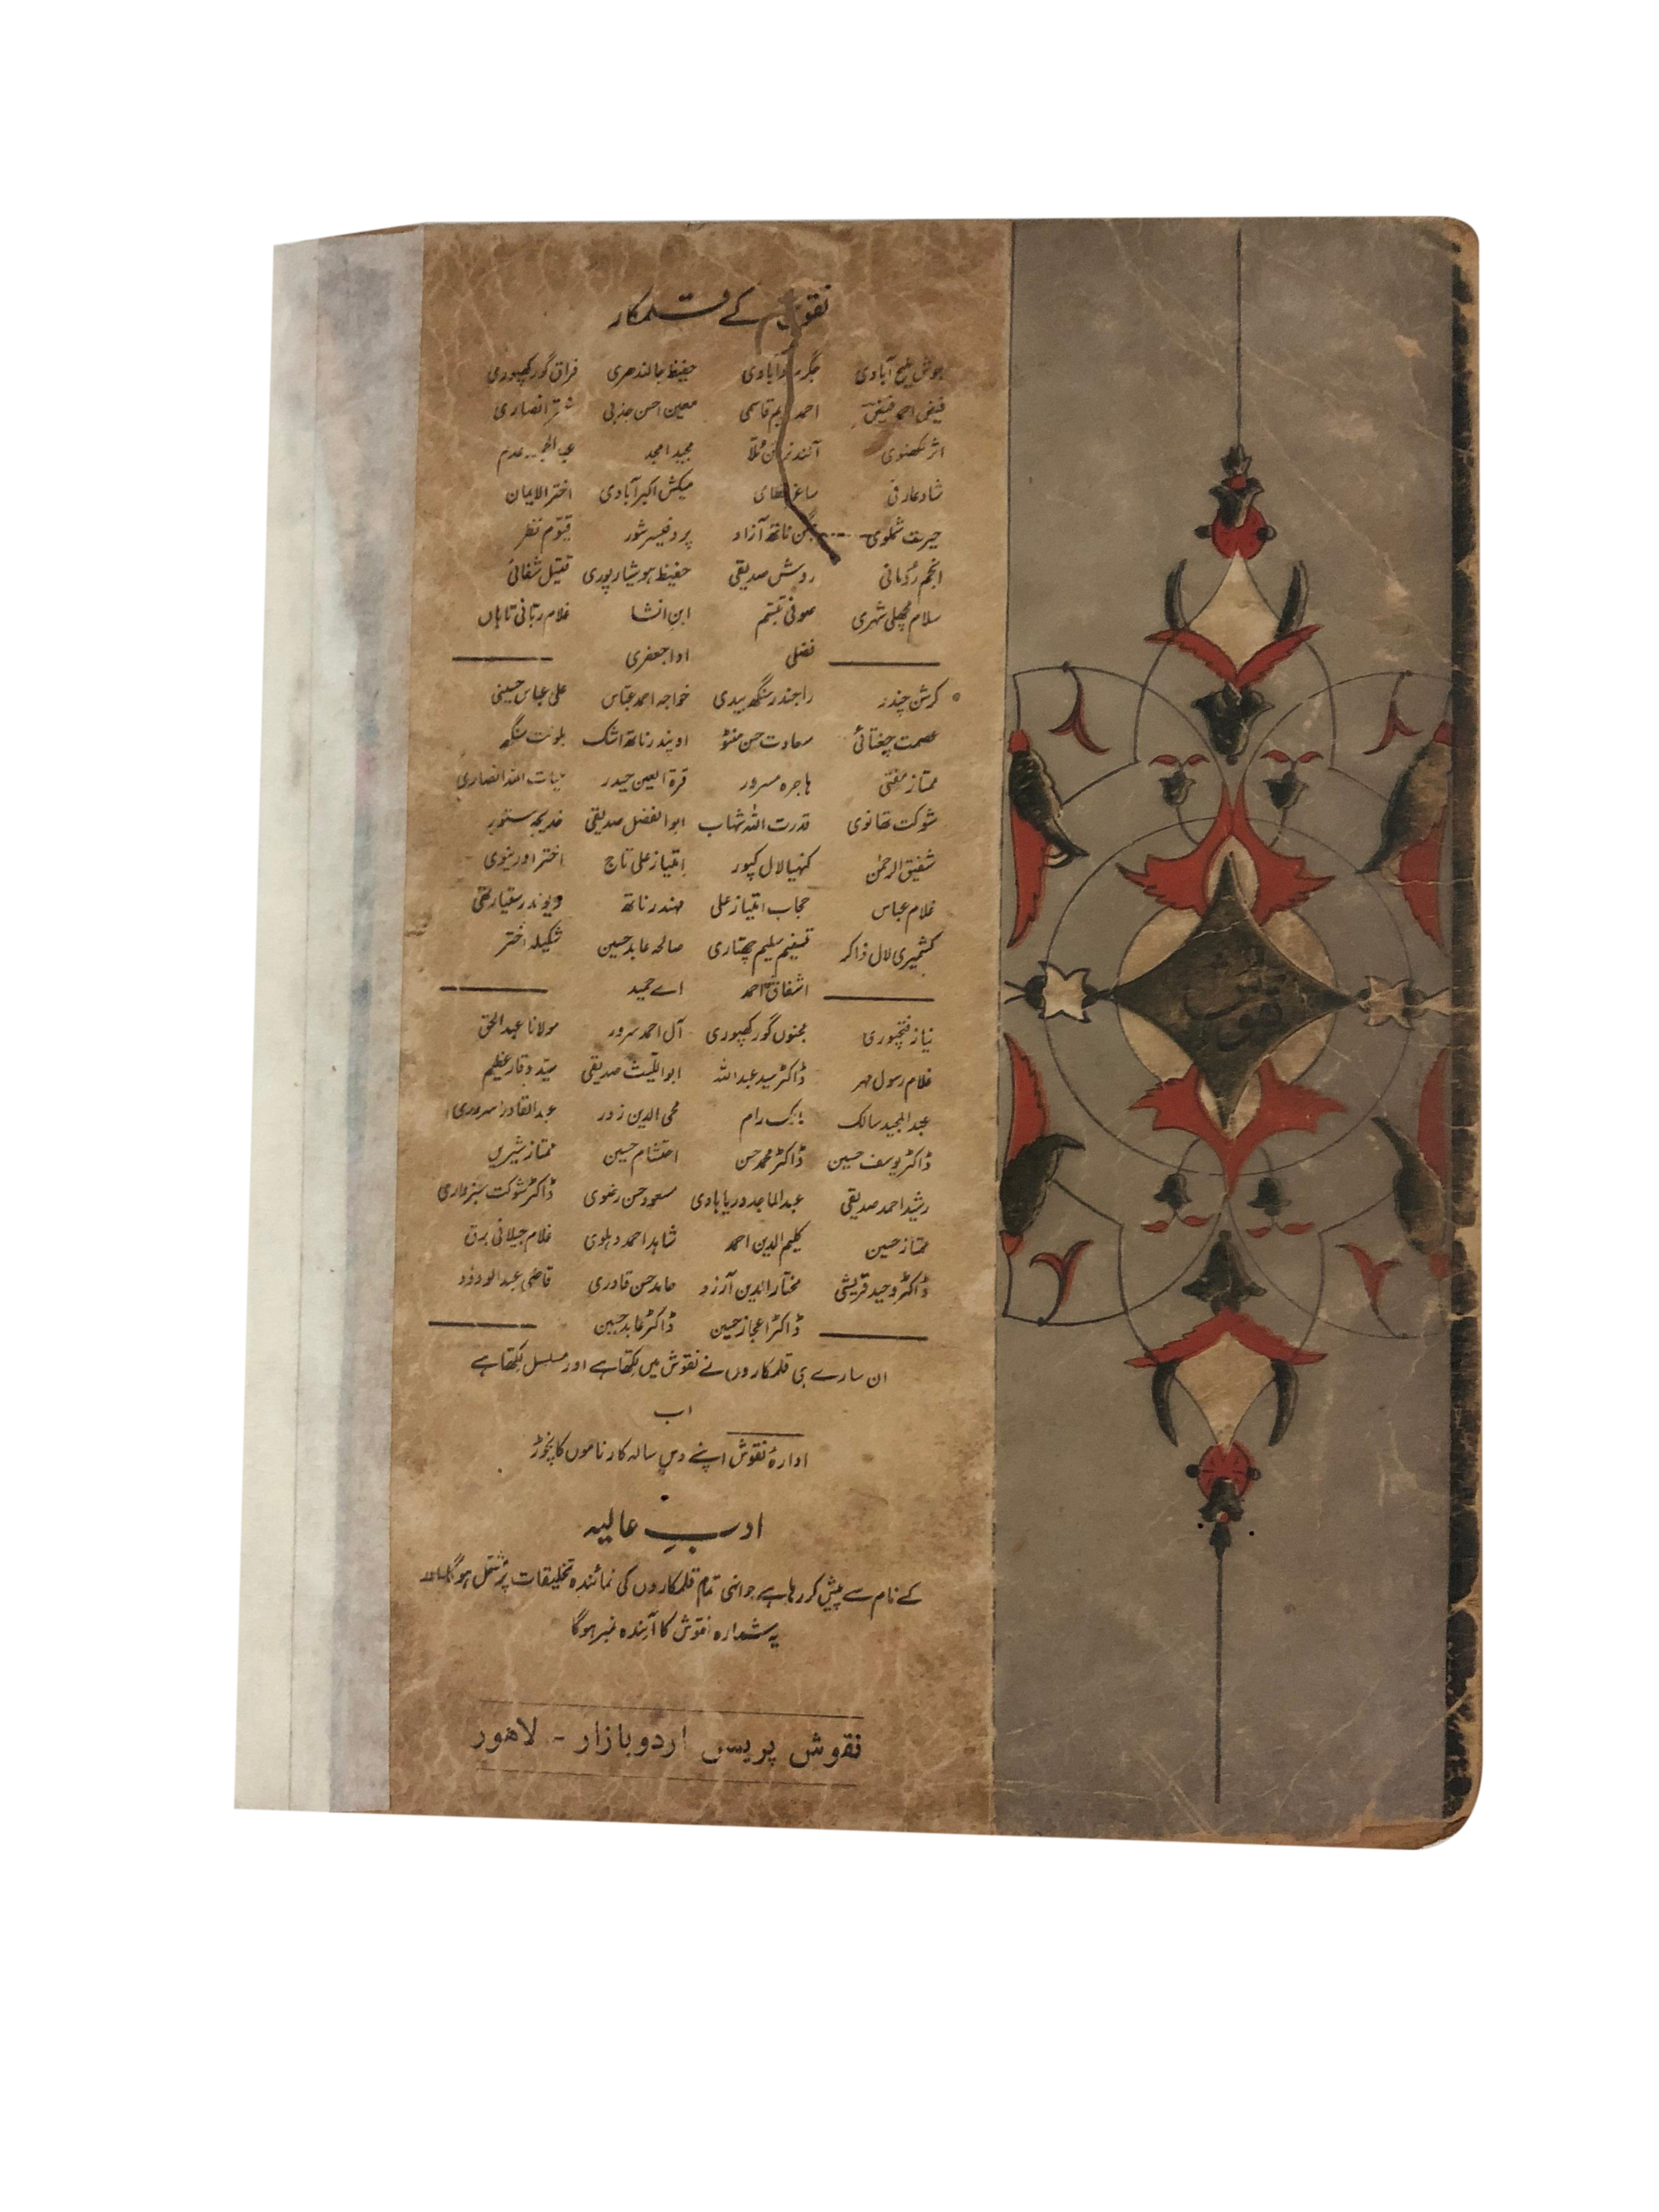 نقوش کے قلمکار
جوش ملیح آبادی جگر مرادآبادی حفیظ جالندھری فراق گورکھپوری
فیض احمد فیض احمد ندیم قاسمی معین احسن جذبی انصاری
اثر لکھنوی آنند نرائن ملا مجید امجد عدم
شاد عارفی ساغر نظامی میکش اکبرآبادی اختر الایمان
حیرت شملوی جگن ناتھ آزاد پروفیسر شور قیوم نظر
انجم رومانی روش صدیقی حفیظ ہوشیارپوری قتیل شفائی
سلام مچھلی شہری صوفی تبسم ابن انشا غلام ربانی تاباں
فضلی ادا جعفری
کرشن چندر راجندر سنگھ بیدی خواجہ احمد عباس علی عباس حسینی
عصمت چغتائی سعادت حسن منٹو اوپندر ناتھ اشک بلونت سنگھ
ممتاز مفتی ہاجرہ مسرور قرۃ العین حیدر حیات اللہ انصاری
شوکت تھانوی قدرت اللہ شہاب ابوالفضل صدیقی خدیجہ مستور
شفیق الرحمٰن کنہیا لال کپور امتیاز علی تاج اختر اورینوی
غلام عباس حجاب امتیاز علی مہندر ناتھ دیوندر ستیارتھی
کشمیری لال ذاکر تسنیم سلیم چھتاری صالحہ عابد حسین شکیلہ اختر
اشفاق احمد اے حمید
نیاز فتحپوری مجنوں گورکھپوری آل احمد سرور مولانا عبدالحق
غلام رسول مہر ڈاکٹر سید عبداللہ ابواللیث صدیقی سید وقار عظیم
عبدالمجید سالک مالک رام محی الدین زور عبدالقادر سروری
ڈاکٹر یوسف حسین ڈاکٹر محمد حسن احتشام حسین ممتاز شیریں
رشید احمد صدیقی عبدالماجد دریابادی مسعود حسن رضوی ڈاکٹر شوکت سبزواری
ممتاز حسین کلیم الدین احمد شاہد احمد دہلوی غلام جیلانی برق
ڈاکٹر وحید قریشی مختار الدین آرزو حامد حسن قادری قاضی عبدالودود
ڈاکٹر اعجاز حسین ڈاکٹر عابد حسین
ان سارے ہی قلمکاروں نے نقوش میں لکھا ہے اور مسلسل لکھا ہے
اب
ادارہ نقوش اپنے دس سالہ کارناموں کا نچوڑ
ادبِ عالیہ
کے نام سے پیش کر رہا ہے جو انہی تمام قلمکاروں کی نمائندہ تخلیقات پر مشتمل ہوگا اور
یہ شمارہ نقوش کا آیندہ نمبر ہوگا
نقوش پریس اردو بازار - لاهور
نقوش